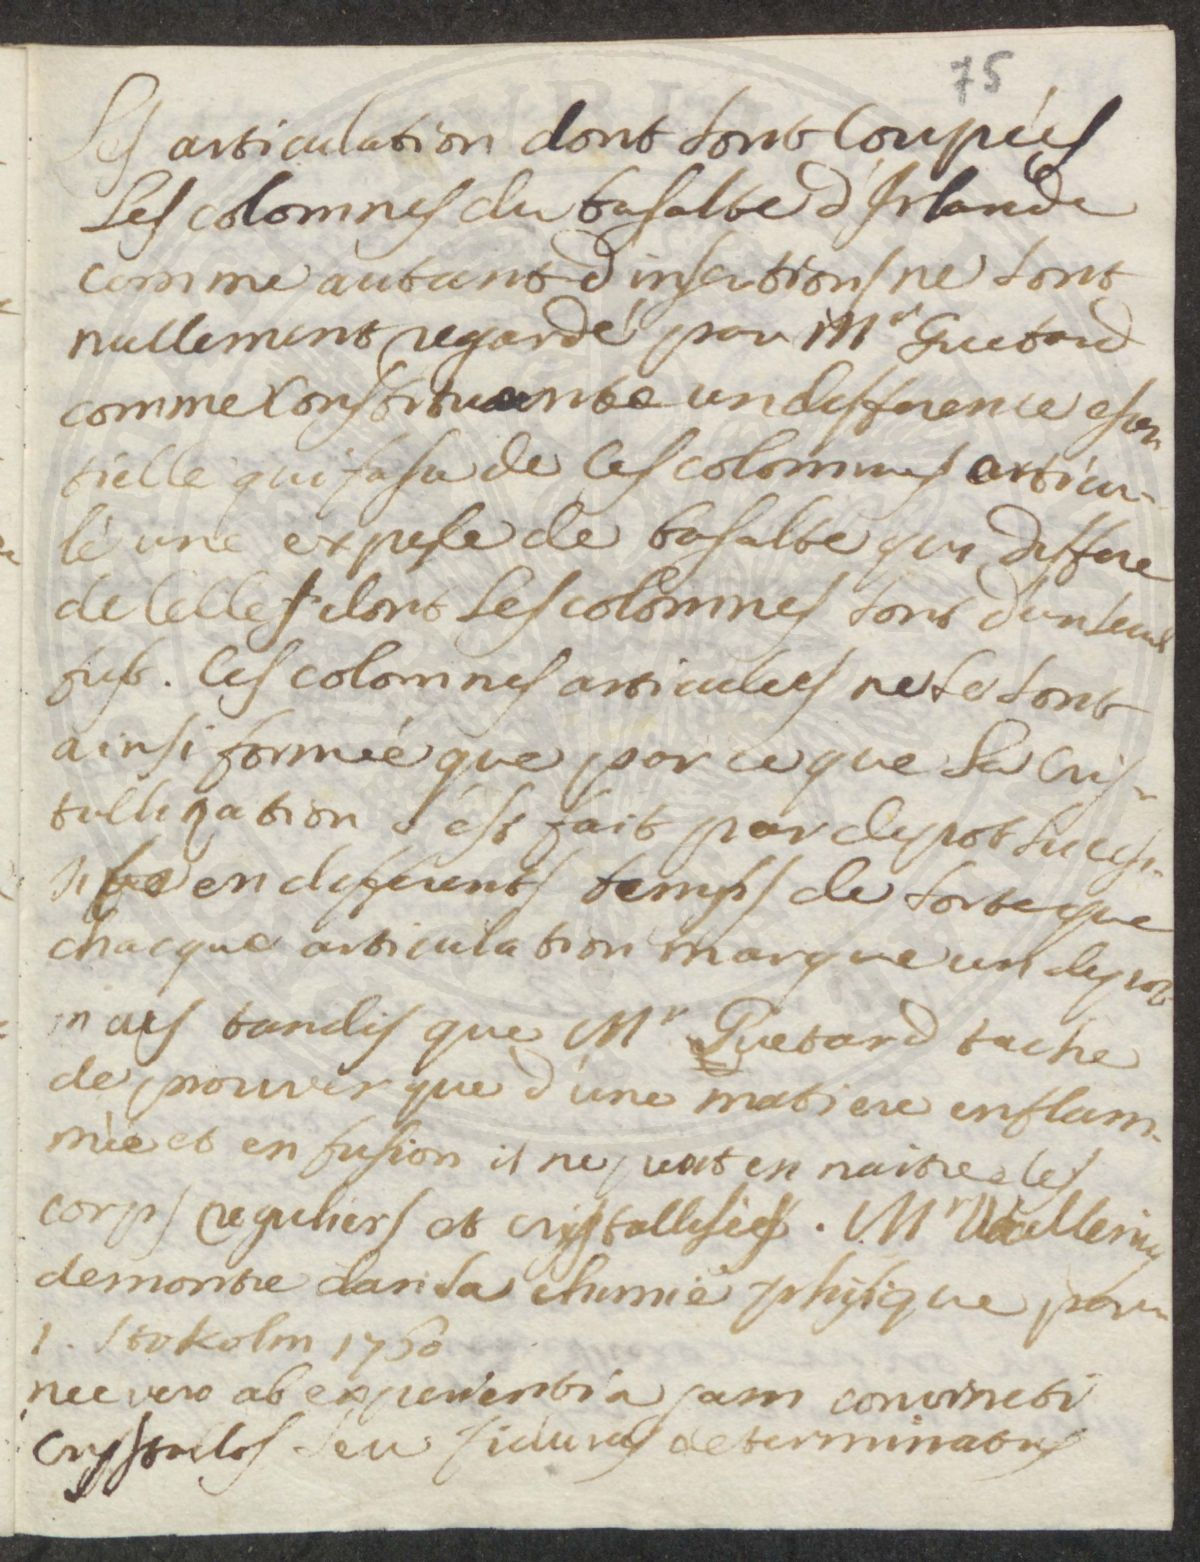 75
Les articulation dont sont Coupées
Les colomnes du basalte d'Irlande
comme autant d'insertions ne sont
nullement regardé par Mr Guetard
comme Constituante un difference essen
tielle qui fasse de Ces colomnes articu-
lé une espese de basalte qui differe
de Celles dont Les colomnes sont d'un seul
fust. Ces colomnes articulees ne se sont
ainsi formée que par ce que La Cris-
tallization s'est fait par depot succesi-
en diferents temps de sorte que
chacque articulation marque un depot
mais tandis que Mr Guetard tache
de prouver que d'une matiere enflam-
mée et en fusion il ne peut en naitre des
corps reguliers et crystallisées. Mr Wallerius
demontre dans sa chimie physique par
1. Stokolm 1760
nec vero ab experientia jam convincti
Crystallos seu figuras determinatas